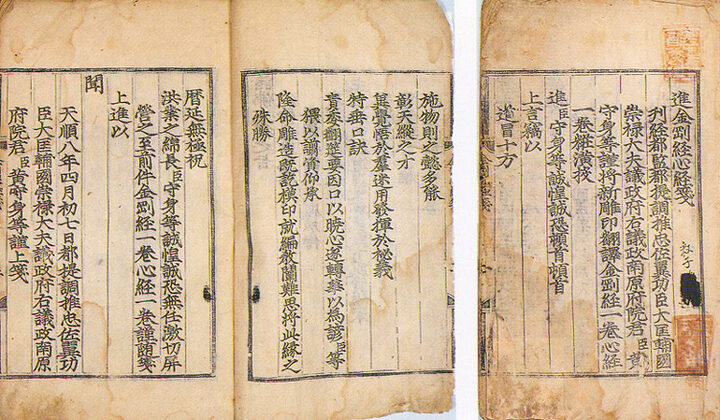 進金剛經心經箋
刊經都監都提調推忠佐翼功臣大匡輔國
崇禄大夫議政府右議政南原府院君臣黃
守身等謹將新雕印翻譯金剛經一卷心經
一卷粧潢投
進臣守身等誠惶誠恐頓首頓首
上言竊以
道冒十方
施物則之懿多能
彰天縱之才
覺悟於羣迷用發揮於秘義
特垂口訣
責委翻 要因口以曉心遂轉華以為諺臣等
猥以謭資仰承
隆命雕造旣訖模印就編敎闡難思將此緣之
殊勝
曆延無極祝
洪業之綿長臣守身等誠惶誠恐無任激切屏
營之至前件金剛經一卷心經一卷謹随箋
上進以
聞
天順八年四月初七日都提調推忠佐翼功
臣大匡輔國崇禄大夫議政府右議政南原
府院君臣黃守身等謹上箋